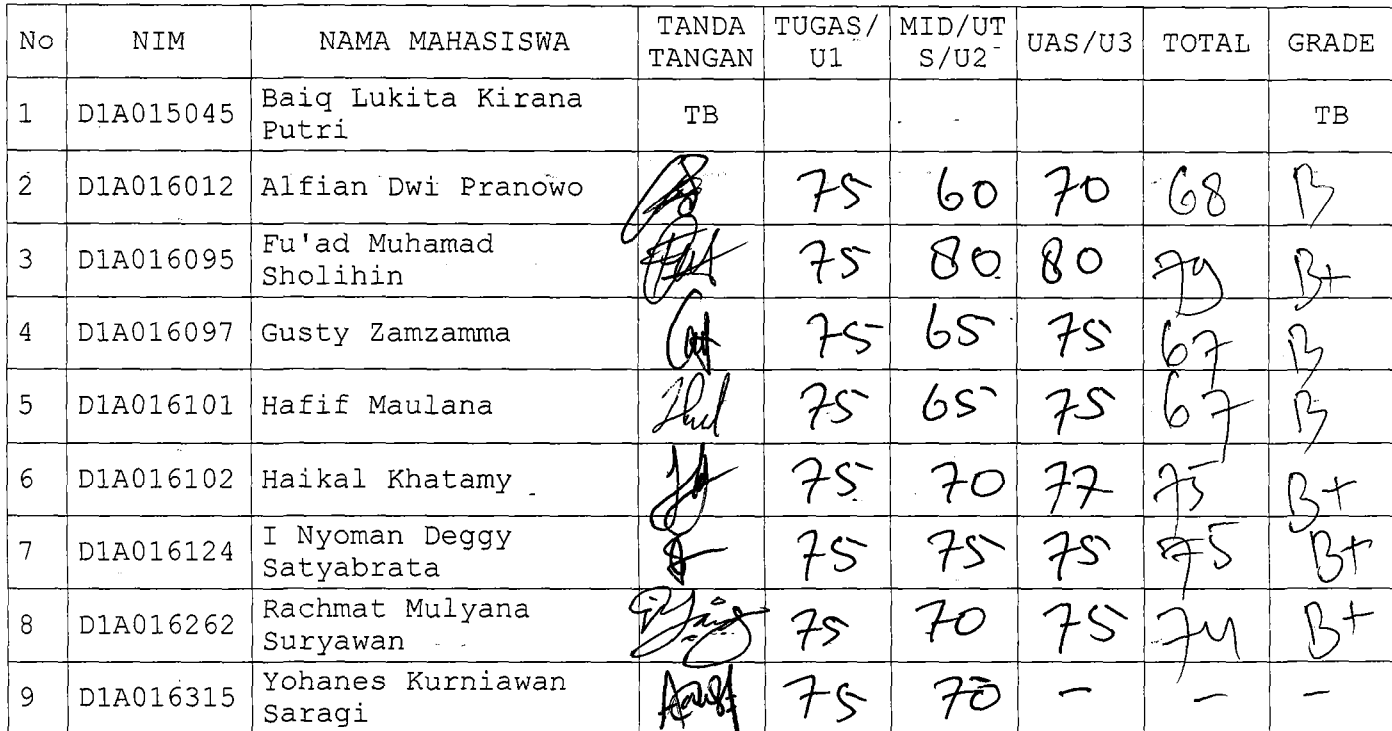 No NIM NAMA MAHASISWA TANDA TANGAN TUGAS/U1 MID/UTS/U2 UAS/U3 TOTAL GRADE
1 D1A015045 Baiq Lukita Kirana Putri TB TB
2 D1A016012 Alfian Dwi Pranowo 75 60 70 68 B
3 D1A016095 Fu'ad Muhamad Sholihin 75 80 80 79 B+
4 D1A016097 Gusty Zamzamma 75 65 75 67 B
5 D1A016101 Hafif Maulana 75 65 75 67 B
6 D1A016102 Haikal Khatamy 75 70 77 75 B+
7 D1A016124 I Nyoman Deggy Satyabrata 75 75 75 75 B+
8 D1A016262 Rachmat Mulyana Suryawan 75 70 75 74 B+
9 D1A016315 Yohanes Kurniawan Saragi 75 70 - - -